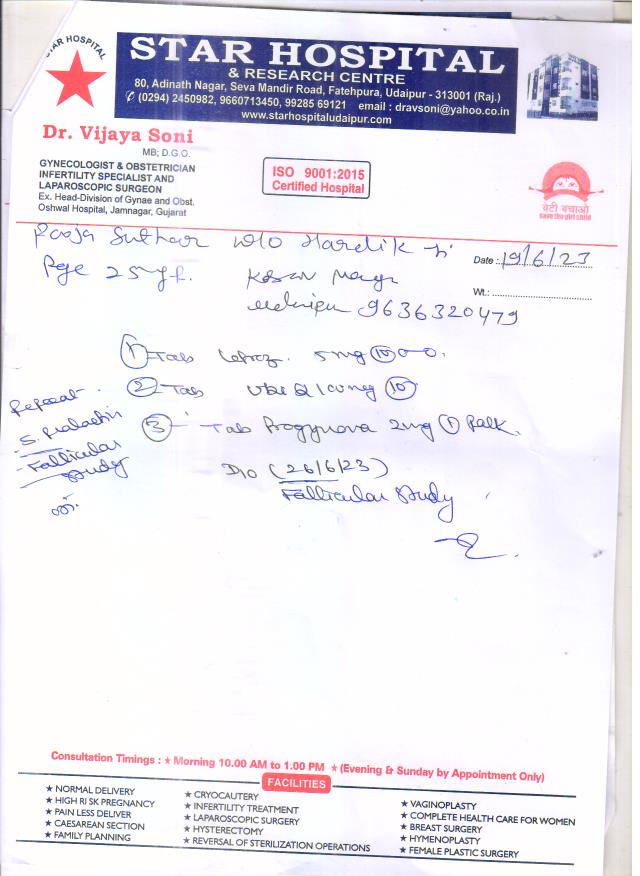 STAR HOSPITAL
STAR HOSPITAL
& RESEARCH CENTRE
80, Adinath Nagar, Seva Mandir Road, Fatehpura, Udaipur - 313001 (Raj.)
✆ (0294) 2450982, 9660713450, 99285 69121 email : dravsoni@yahoo.co.in
www.starhospitaludaipur.com
Dr. Vijaya Soni
MB; D.G.O.
GYNECOLOGIST & OBSTETRICIAN
INFERTILITY SPECIALIST AND
LAPAROSCOPIC SURGEON
Ex. Head-Division of Gynae and Obst.
Oshwal Hospital, Jamnagar, Gujarat
ISO 9001:2015
Certified Hospital
बेटी बचाओ
save the girl child
Pooja Suthar w/o Hardik
Date : 19/6/23
Age 25 yr.
Wt.:
9636320479
① Tab 5mg ⑩
② Tab Q 100mg ⑩
③ Tab Progynova 2mg ① Pack.
Repeat
S. Prolactin
- Follicular
study
D10 (26/6/23)
Follicular study
Consultation Timings : ★ Morning 10.00 AM to 1.00 PM ★ (Evening & Sunday by Appointment Only)
FACILITIES
★ NORMAL DELIVERY
★ HIGH RISK PREGNANCY
★ PAIN LESS DELIVER
★ CAESAREAN SECTION
★ FAMILY PLANNING
★ CRYOCAUTERY
★ INFERTILITY TREATMENT
★ LAPAROSCOPIC SURGERY
★ HYSTERECTOMY
★ REVERSAL OF STERILIZATION OPERATIONS
★ VAGINOPLASTY
★ COMPLETE HEALTH CARE FOR WOMEN
★ BREAST SURGERY
★ HYMENOPLASTY
★ FEMALE PLASTIC SURGERY